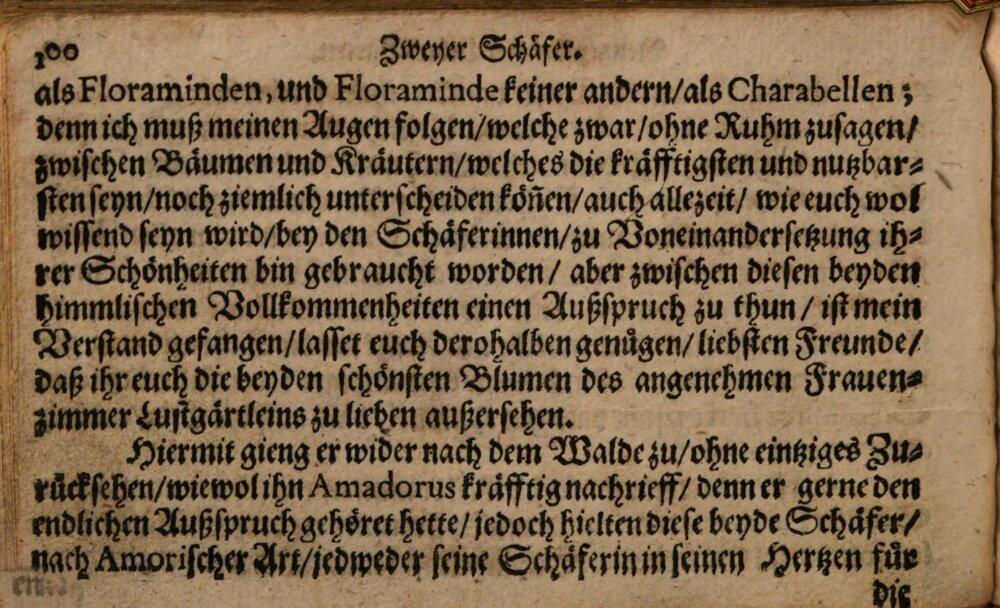 100 Zweyer Schäfer.
als Floraminden, und Floraminde keiner andern/als Charabellen;
denn ich muß meinen Augen folgen/welche zwar/ohne Ruhm zusagen/
zwischen Bäumen und Kräutern/welches die kräfftigsten und nutzbar-
sten seyn/noch ziemlich unterscheiden köñen/auch allezeit/ wie euch wol
wissend seyn wird/bey den Schäferinnen/zu Voneinandersetzung ih-
rer Schönheiten bin gebraucht worden/ aber zwischen diesen beyden
himmlischen Vollkommenheiten einen Außspruch zu thun/ ist mein
Verstand gefangen/lasset euch derohalben genügen/ liebsten Freunde/
daß ihr euch die beyden schönsten Blumen des angenehmen Frauen-
zimmer Lustgärtleins zu lieben außersehen.
Hiermit gieng er wider nach dem Walde zu/ohne eintziges Zu-
rücksehen/wiewol ihn Amadorus kräfftig nachrieff/ denn er gerne den
endlichen Außspruch gehöret hette/ jedoch hielten diese beyde Schäfer/
nach Amorischer Art/jedweder seine Schäferin in seinen Hertzen für
die